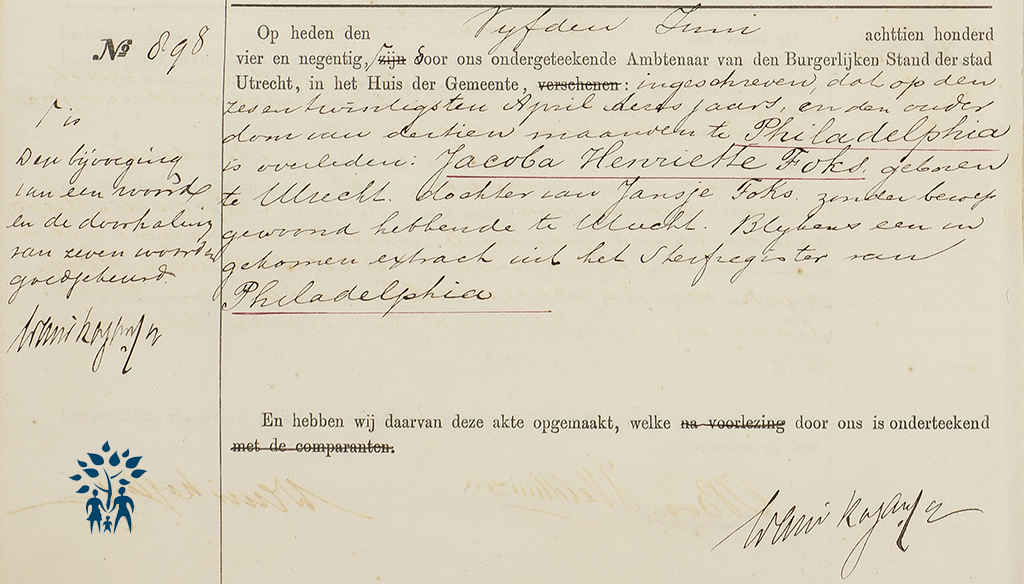 No 898
Op heden den Vyfden Juni achttien honderd
vier en negentig, is zijn door ons ondergeteekende Ambtenaar van den Burgerlijken Stand der stad
Utrecht, in het Huis der Gemeente, verschenen: ingeschreven, dat op den
zesentwintigsten April dezes jaars, in den ouder
dom van dertien maanden te Philadelphia
is overleden: Jacoba Henriette Foks, geboren
te Utrecht. dochter van Jansje Foks. zonder beroep
gewoond hebbende te Utrecht. Blykens een in
gekomen extract uit het Sterfregister van
Philadelphia
is
Deze bijvoeging
van een woord
en de doorhaling
van zeven woorden
goedgekeurd.
En hebben wij daarvan deze akte opgemaakt, welke na voorlezing door ons is onderteekend
met de comparanten.